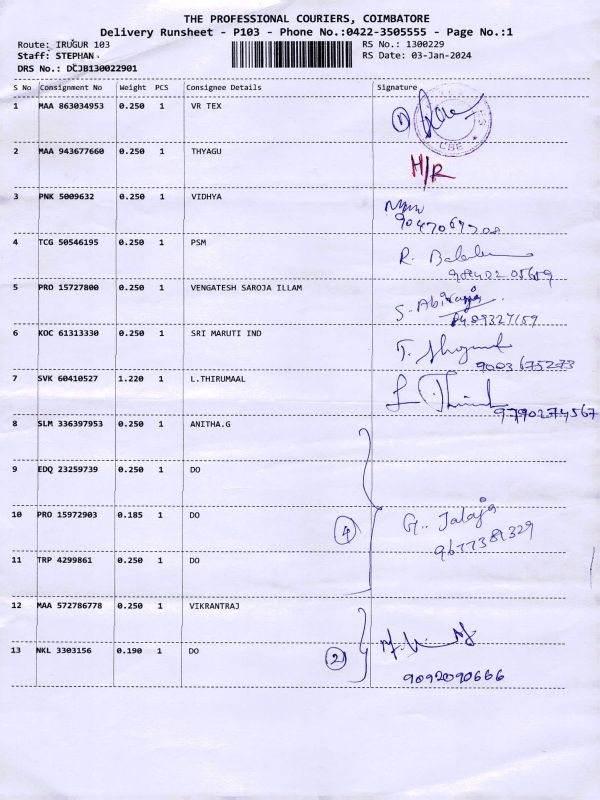 THE PROFESSIONAL COURIERS, COIMBATORE
Delivery Runsheet - P103 - Phone No.:0422-3505555 - Page No.:1
Route: IRUGUR 103 RS No.: 1300229
Staff: STEPHAN RS Date: 03-Jan-2024
DRS No.: DCJB130022901
S No Consignment No Weight PCS Consignee Details Signature
1 MAA 863034953 0.250 1 VR TEX 1
CBE
2 MAA 943677660 0.250 1 THYAGU H/R
3 PNK 5009632 0.250 1 VIDHYA
4 TCG 50546195 0.250 1 PSM R.
5 PRO 15727800 0.250 1 VENGATESH SAROJA ILLAM S.
8489327159
6 KOC 61313330 0.250 1 SRI MARUTI IND T.
9003675273
7 SVK 60410527 1.220 1 L.THIRUMAAL
9790274567
8 SLM 336397953 0.250 1 ANITHA.G
9 EDQ 23259739 0.250 1 DO
10 PRO 15972903 0.185 1 DO 4 G. Jalaja
9677381329
11 TRP 4299861 0.250 1 DO
12 MAA 572786778 0.250 1 VIKRANTRAJ
13 NKL 3303156 0.190 1 DO 2
9092090666